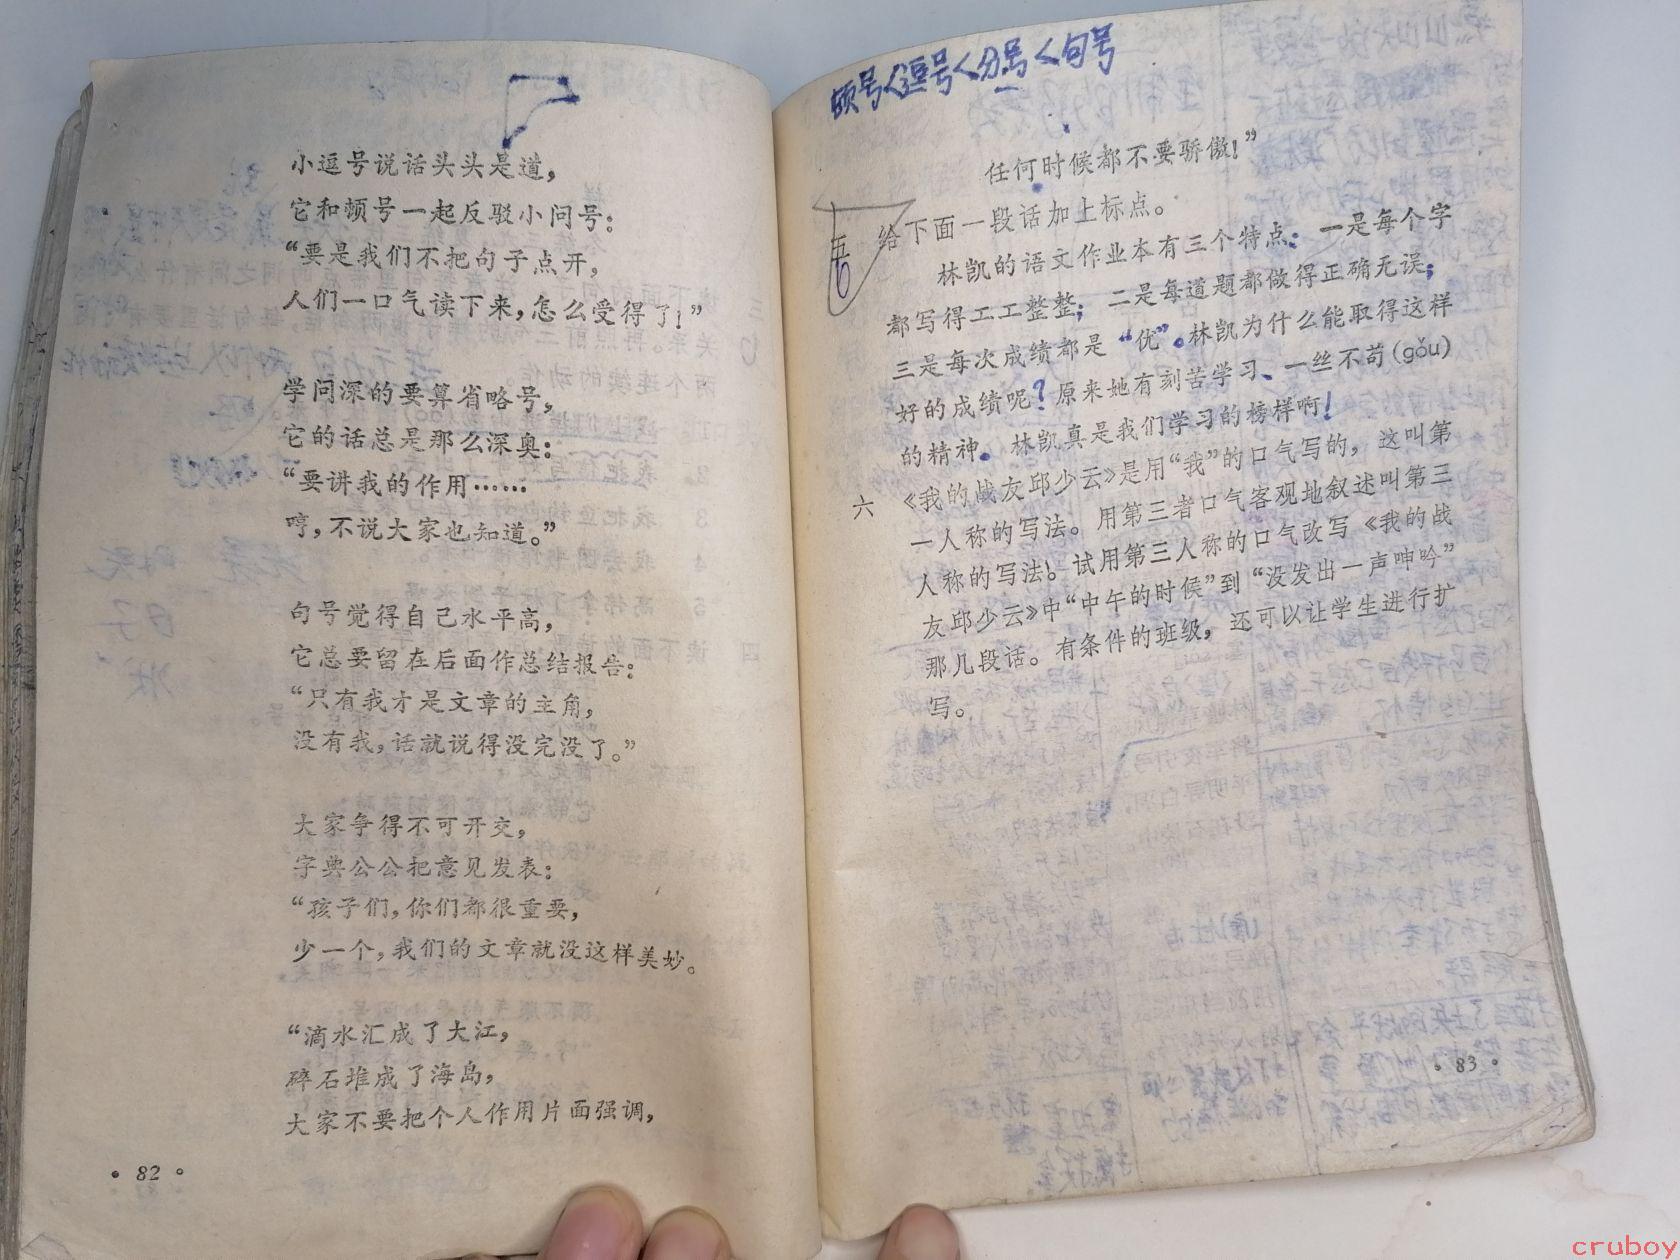 小逗号说话头头是道，
它和顿号一起反驳小问号：
“要是我们不把句子点开，
人们一口气读下来，怎么受得了！”
学问深的要算省略号，
它的话总是那么深奥：
“要讲我的作用……
哼，不说大家也知道。”
句号觉得自己水平高，
它总要留在后面作总结报告：
“只有我才是文章的主角，
没有我，话就说得没完没了。”
大家争得不可开交，
字典公公把意见发表：
“孩子们，你们都很重要，
少一个，我们的文章就没这样美妙。
“滴水汇成了大江，
碎石堆成了海岛，
大家不要把个人作用片面强调，
·82·
顿号<逗号<分号<句号
任何时候都不要骄傲！”
五 给下面一段话加上标点。
林凯的语文作业本有三个特点：一是每个字
都写得工工整整；二是每道题都做得正确无误；
三是每次成绩都是“优”。林凯为什么能取得这样
好的成绩呢？原来她有刻苦学习、一丝不苟(gǒu)
的精神。林凯真是我们学习的榜样啊！
六 《我的战友邱少云》是用“我”的口气写的，这叫第
一人称的写法。用第三者口气客观地叙述叫第三
人称的写法。试用第三人称的口气改写《我的战
友邱少云》中“中午的时候”到“没发出一声呻吟”
那几段话。有条件的班级，还可以让学生进行扩
写。
·83·
cruboy